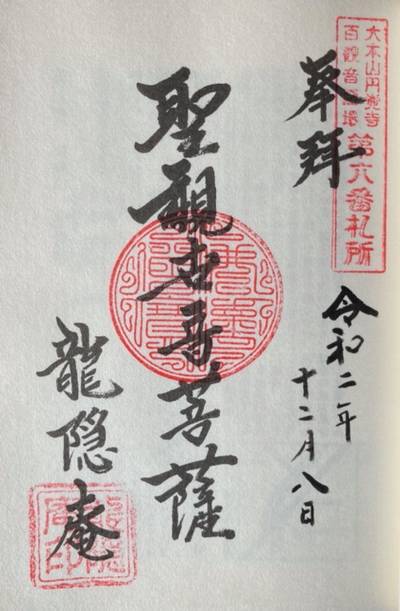 大本山円覚寺
百観音霊場
第六番札所
奉拝
令和二年
十二月八日
聖観世音菩薩
龍隠庵